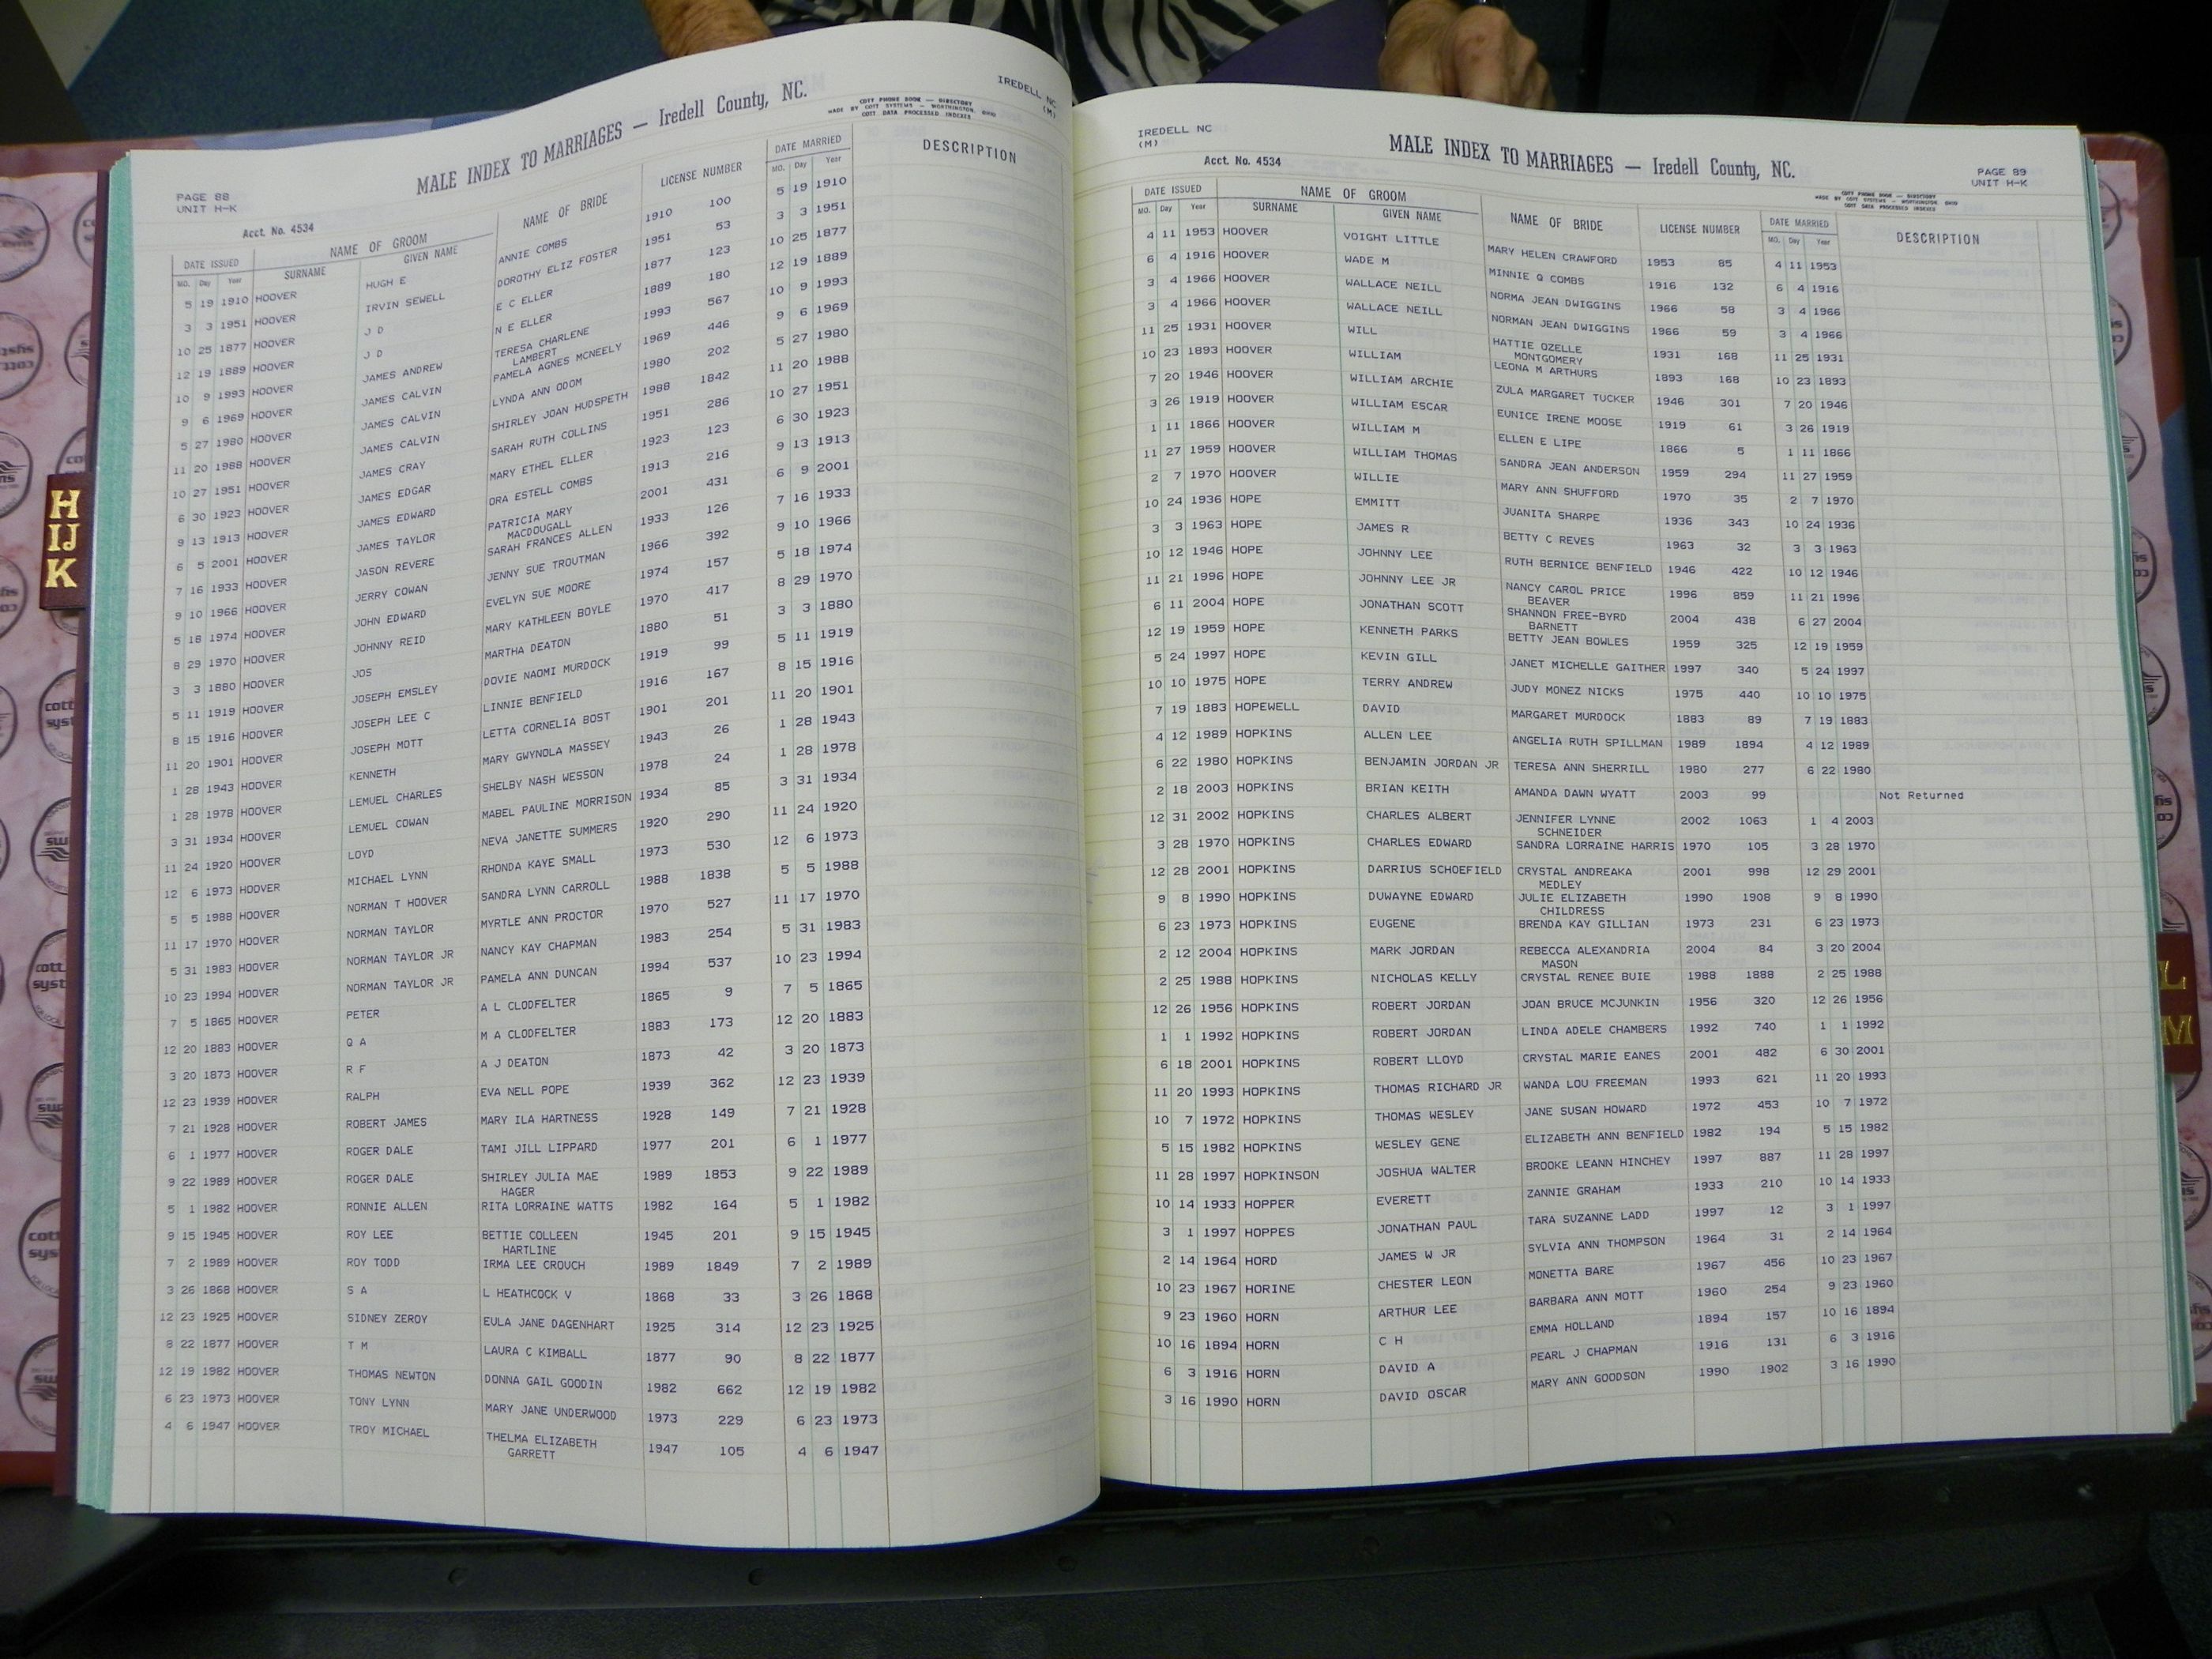 PAGE 88
UNIT H-K
MALE INDEX TO MARRIAGES — Iredell County, NC.
COTT PHONE BOOK — DIRECTORY
MADE BY COTT SYSTEMS — WORTHINGTON, OHIO
COTT DATA PROCESSED INDEXES
IREDELL NC
(M)
Acct. No. 4534
DATE ISSUED NAME OF GROOM NAME OF BRIDE LICENSE NUMBER DATE MARRIED DESCRIPTION
MO. Day Year SURNAME GIVEN NAME MO. Day Year
5 19 1910 HOOVER HUGH E ANNIE COMBS 1910 100 5 19 1910
3 3 1951 HOOVER IRVIN SEWELL DOROTHY ELIZ FOSTER 1951 53 3 3 1951
10 25 1877 HOOVER J D E C ELLER 1877 123 10 25 1877
12 19 1889 HOOVER J D N E ELLER 1889 180 12 19 1889
10 9 1993 HOOVER JAMES ANDREW TERESA CHARLENE 1993 567 10 9 1993
LAMBERT
9 6 1969 HOOVER JAMES CALVIN PAMELA AGNES MCNEELY 1969 446 9 6 1969
5 27 1980 HOOVER JAMES CALVIN LYNDA ANN ODOM 1980 202 5 27 1980
11 20 1988 HOOVER JAMES CALVIN SHIRLEY JOAN HUDSPETH 1988 1842 11 20 1988
10 27 1951 HOOVER JAMES CRAY SARAH RUTH COLLINS 1951 286 10 27 1951
6 30 1923 HOOVER JAMES EDGAR MARY ETHEL ELLER 1923 123 6 30 1923
9 13 1913 HOOVER JAMES EDWARD ORA ESTELL COMBS 1913 216 9 13 1913
6 5 2001 HOOVER JAMES TAYLOR PATRICIA MARY 2001 431 6 9 2001
MACDOUGALL
7 16 1933 HOOVER JASON REVERE SARAH FRANCES ALLEN 1933 126 7 16 1933
9 10 1966 HOOVER JERRY COWAN JENNY SUE TROUTMAN 1966 392 9 10 1966
5 18 1974 HOOVER JOHN EDWARD EVELYN SUE MOORE 1974 157 5 18 1974
8 29 1970 HOOVER JOHNNY REID MARY KATHLEEN BOYLE 1970 417 8 29 1970
3 3 1880 HOOVER JOS MARTHA DEATON 1880 51 3 3 1880
5 11 1919 HOOVER JOSEPH EMSLEY DOVIE NAOMI MURDOCK 1919 99 5 11 1919
8 15 1916 HOOVER JOSEPH LEE C LINNIE BENFIELD 1916 167 8 15 1916
11 20 1901 HOOVER JOSEPH MOTT LETTA CORNELIA BOST 1901 201 11 20 1901
1 28 1943 HOOVER KENNETH MARY GWYNOLA MASSEY 1943 26 1 28 1943
1 28 1978 HOOVER LEMUEL CHARLES SHELBY NASH WESSON 1978 24 1 28 1978
3 31 1934 HOOVER LEMUEL COWAN MABEL PAULINE MORRISON 1934 85 3 31 1934
11 24 1920 HOOVER LOYD NEVA JANETTE SUMMERS 1920 290 11 24 1920
12 6 1973 HOOVER MICHAEL LYNN RHONDA KAYE SMALL 1973 530 12 6 1973
5 5 1988 HOOVER NORMAN T HOOVER SANDRA LYNN CARROLL 1988 1838 5 5 1988
11 17 1970 HOOVER NORMAN TAYLOR MYRTLE ANN PROCTOR 1970 527 11 17 1970
5 31 1983 HOOVER NORMAN TAYLOR JR NANCY KAY CHAPMAN 1983 254 5 31 1983
10 23 1994 HOOVER NORMAN TAYLOR JR PAMELA ANN DUNCAN 1994 537 10 23 1994
7 5 1865 HOOVER PETER A L CLODFELTER 1865 9 7 5 1865
12 20 1883 HOOVER Q A M A CLODFELTER 1883 173 12 20 1883
3 20 1873 HOOVER R F A J DEATON 1873 42 3 20 1873
12 23 1939 HOOVER RALPH EVA NELL POPE 1939 362 12 23 1939
7 21 1928 HOOVER ROBERT JAMES MARY ILA HARTNESS 1928 149 7 21 1928
6 1 1977 HOOVER ROGER DALE TAMI JILL LIPPARD 1977 201 6 1 1977
9 22 1989 HOOVER ROGER DALE SHIRLEY JULIA MAE 1989 1853 9 22 1989
HAGER
5 1 1982 HOOVER RONNIE ALLEN RITA LORRAINE WATTS 1982 164 5 1 1982
9 15 1945 HOOVER ROY LEE BETTIE COLLEEN 1945 201 9 15 1945
HARTLINE
7 2 1989 HOOVER ROY TODD IRMA LEE CROUCH 1989 1849 7 2 1989
3 26 1868 HOOVER S A L HEATHCOCK V 1868 33 3 26 1868
12 23 1925 HOOVER SIDNEY ZEROY EULA JANE DAGENHART 1925 314 12 23 1925
8 22 1877 HOOVER T M LAURA C KIMBALL 1877 90 8 22 1877
12 19 1982 HOOVER THOMAS NEWTON DONNA GAIL GOODIN 1982 662 12 19 1982
6 23 1973 HOOVER TONY LYNN MARY JANE UNDERWOOD 1973 229 6 23 1973
4 6 1947 HOOVER TROY MICHAEL THELMA ELIZABETH 1947 105 4 6 1947
GARRETT
IREDELL NC
(M)
MALE INDEX TO MARRIAGES — Iredell County, NC.
PAGE 89
UNIT H-K
Acct. No. 4534
COTT PHONE BOOK — DIRECTORY
MADE BY COTT SYSTEMS — WORTHINGTON, OHIO
COTT DATA PROCESSED INDEXES
DATE ISSUED NAME OF GROOM NAME OF BRIDE LICENSE NUMBER DATE MARRIED DESCRIPTION
MO. Day Year SURNAME GIVEN NAME MO. Day Year
4 11 1953 HOOVER VOIGHT LITTLE MARY HELEN CRAWFORD 1953 85 4 11 1953
6 4 1916 HOOVER WADE M MINNIE Q COMBS 1916 132 6 4 1916
3 4 1966 HOOVER WALLACE NEILL NORMA JEAN DWIGGINS 1966 58 3 4 1966
3 4 1966 HOOVER WALLACE NEILL NORMAN JEAN DWIGGINS 1966 59 3 4 1966
11 25 1931 HOOVER WILL HATTIE OZELLE 1931 168 11 25 1931
MONTGOMERY
10 23 1893 HOOVER WILLIAM LEONA M ARTHURS 1893 168 10 23 1893
7 20 1946 HOOVER WILLIAM ARCHIE ZULA MARGARET TUCKER 1946 301 7 20 1946
3 26 1919 HOOVER WILLIAM ESCAR EUNICE IRENE MOOSE 1919 61 3 26 1919
1 11 1866 HOOVER WILLIAM M ELLEN E LIPE 1866 5 1 11 1866
11 27 1959 HOOVER WILLIAM THOMAS SANDRA JEAN ANDERSON 1959 294 11 27 1959
2 7 1970 HOOVER WILLIE MARY ANN SHUFFORD 1970 35 2 7 1970
10 24 1936 HOPE EMMITT JUANITA SHARPE 1936 343 10 24 1936
3 3 1963 HOPE JAMES R BETTY C REVES 1963 32 3 3 1963
10 12 1946 HOPE JOHNNY LEE RUTH BERNICE BENFIELD 1946 422 10 12 1946
11 21 1996 HOPE JOHNNY LEE JR NANCY CAROL PRICE 1996 859 11 21 1996
BEAVER
6 11 2004 HOPE JONATHAN SCOTT SHANNON FREE-BYRD 2004 438 6 27 2004
BARNETT
12 19 1959 HOPE KENNETH PARKS BETTY JEAN BOWLES 1959 325 12 19 1959
5 24 1997 HOPE KEVIN GILL JANET MICHELLE GAITHER 1997 340 5 24 1997
10 10 1975 HOPE TERRY ANDREW JUDY MONEZ NICKS 1975 440 10 10 1975
7 19 1883 HOPEWELL DAVID MARGARET MURDOCK 1883 89 7 19 1883
4 12 1989 HOPKINS ALLEN LEE ANGELIA RUTH SPILLMAN 1989 1894 4 12 1989
6 22 1980 HOPKINS BENJAMIN JORDAN JR TERESA ANN SHERRILL 1980 277 6 22 1980
2 18 2003 HOPKINS BRIAN KEITH AMANDA DAWN WYATT 2003 99 Not Returned
12 31 2002 HOPKINS CHARLES ALBERT JENNIFER LYNNE 2002 1063 1 4 2003
SCHNEIDER
3 28 1970 HOPKINS CHARLES EDWARD SANDRA LORRAINE HARRIS 1970 105 3 28 1970
12 28 2001 HOPKINS DARRIUS SCHOEFIELD CRYSTAL ANDREAKA 2001 998 12 29 2001
MEDLEY
9 8 1990 HOPKINS DUWAYNE EDWARD JULIE ELIZABETH 1990 1908 9 8 1990
CHILDRESS
6 23 1973 HOPKINS EUGENE BRENDA KAY GILLIAN 1973 231 6 23 1973
2 12 2004 HOPKINS MARK JORDAN REBECCA ALEXANDRIA 2004 84 3 20 2004
MASON
2 25 1988 HOPKINS NICHOLAS KELLY CRYSTAL RENEE BUIE 1988 1888 2 25 1988
12 26 1956 HOPKINS ROBERT JORDAN JOAN BRUCE MCJUNKIN 1956 320 12 26 1956
1 1 1992 HOPKINS ROBERT JORDAN LINDA ADELE CHAMBERS 1992 740 1 1 1992
6 18 2001 HOPKINS ROBERT LLOYD CRYSTAL MARIE EANES 2001 482 6 30 2001
11 20 1993 HOPKINS THOMAS RICHARD JR WANDA LOU FREEMAN 1993 621 11 20 1993
10 7 1972 HOPKINS THOMAS WESLEY JANE SUSAN HOWARD 1972 453 10 7 1972
5 15 1982 HOPKINS WESLEY GENE ELIZABETH ANN BENFIELD 1982 194 5 15 1982
11 28 1997 HOPKINSON JOSHUA WALTER BROOKE LEANN HINCHEY 1997 887 11 28 1997
10 14 1933 HOPPER EVERETT ZANNIE GRAHAM 1933 210 10 14 1933
3 1 1997 HOPPES JONATHAN PAUL TARA SUZANNE LADD 1997 12 3 1 1997
2 14 1964 HORD JAMES W JR SYLVIA ANN THOMPSON 1964 31 2 14 1964
10 23 1967 HORINE CHESTER LEON MONETTA BARE 1967 456 10 23 1967
9 23 1960 HORN ARTHUR LEE BARBARA ANN MOTT 1960 254 9 23 1960
10 16 1894 HORN C H EMMA HOLLAND 1894 157 10 16 1894
6 3 1916 HORN DAVID A PEARL J CHAPMAN 1916 131 6 3 1916
3 16 1990 HORN DAVID OSCAR MARY ANN GOODSON 1990 1902 3 16 1990
H
IJ
K
L
M